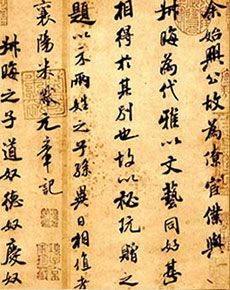 余始興公故為僚宦僕與
叔晦為代雅以文藝同好甚
相得於其別也故以秘玩贈之
題以示兩姓之子孫異日相值者
襄陽米黻元章記
叔晦之子道奴德奴慶奴